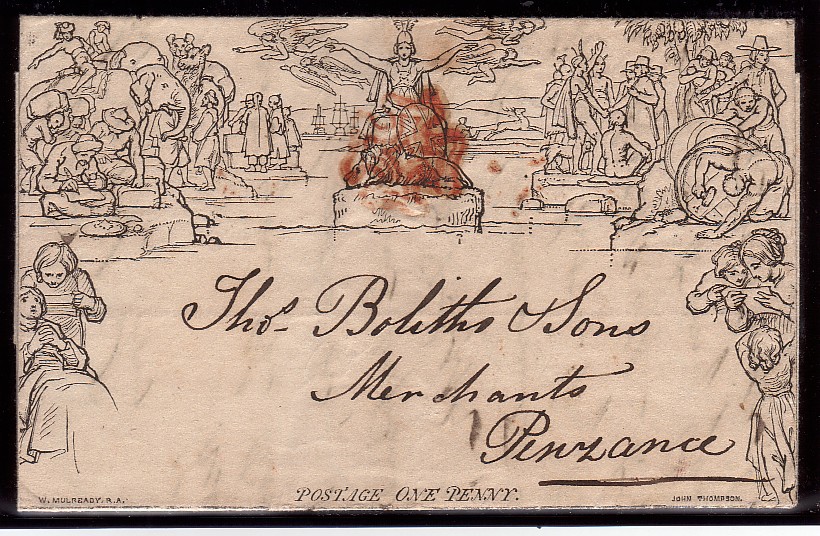 Thos. Bolitho & Sons
Merchants
Penzance
W. MULREADY, R.A.
POSTAGE ONE PENNY.
JOHN THOMPSON.